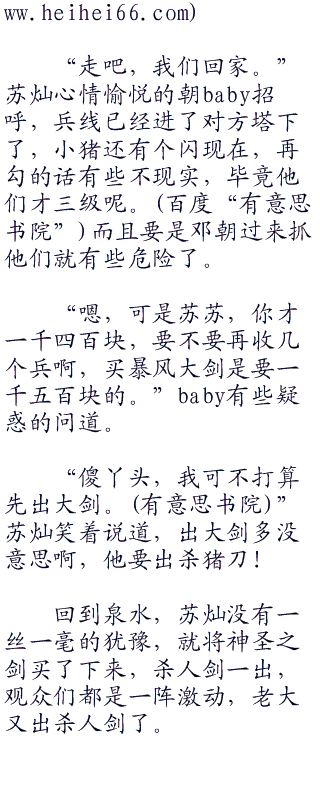 ww.heihei66.com)
“走吧，我们回家。”
苏灿心情愉悦的朝baby招
呼，兵线已经进了对方塔下
了，小猪还有个闪现在，再
勾的话有些不现实，毕竟他
们才三级呢。(百度“有意思
书院”)而且要是邓朝过来抓
他们就有些危险了。
“嗯，可是苏苏，你才
一千四百块，要不要再收几
个兵啊，买暴风大剑是要一
千五百块的。”baby有些疑
惑的问道。
“傻丫头，我可不打算
先出大剑。(有意思书院)”
苏灿笑着说道，出大剑多没
意思啊，他要出杀猪刀！
回到泉水，苏灿没有一
丝一毫的犹豫，就将神圣之
剑买了下来，杀人剑一出，
观众们都是一阵激动，老大
又出杀人剑了。